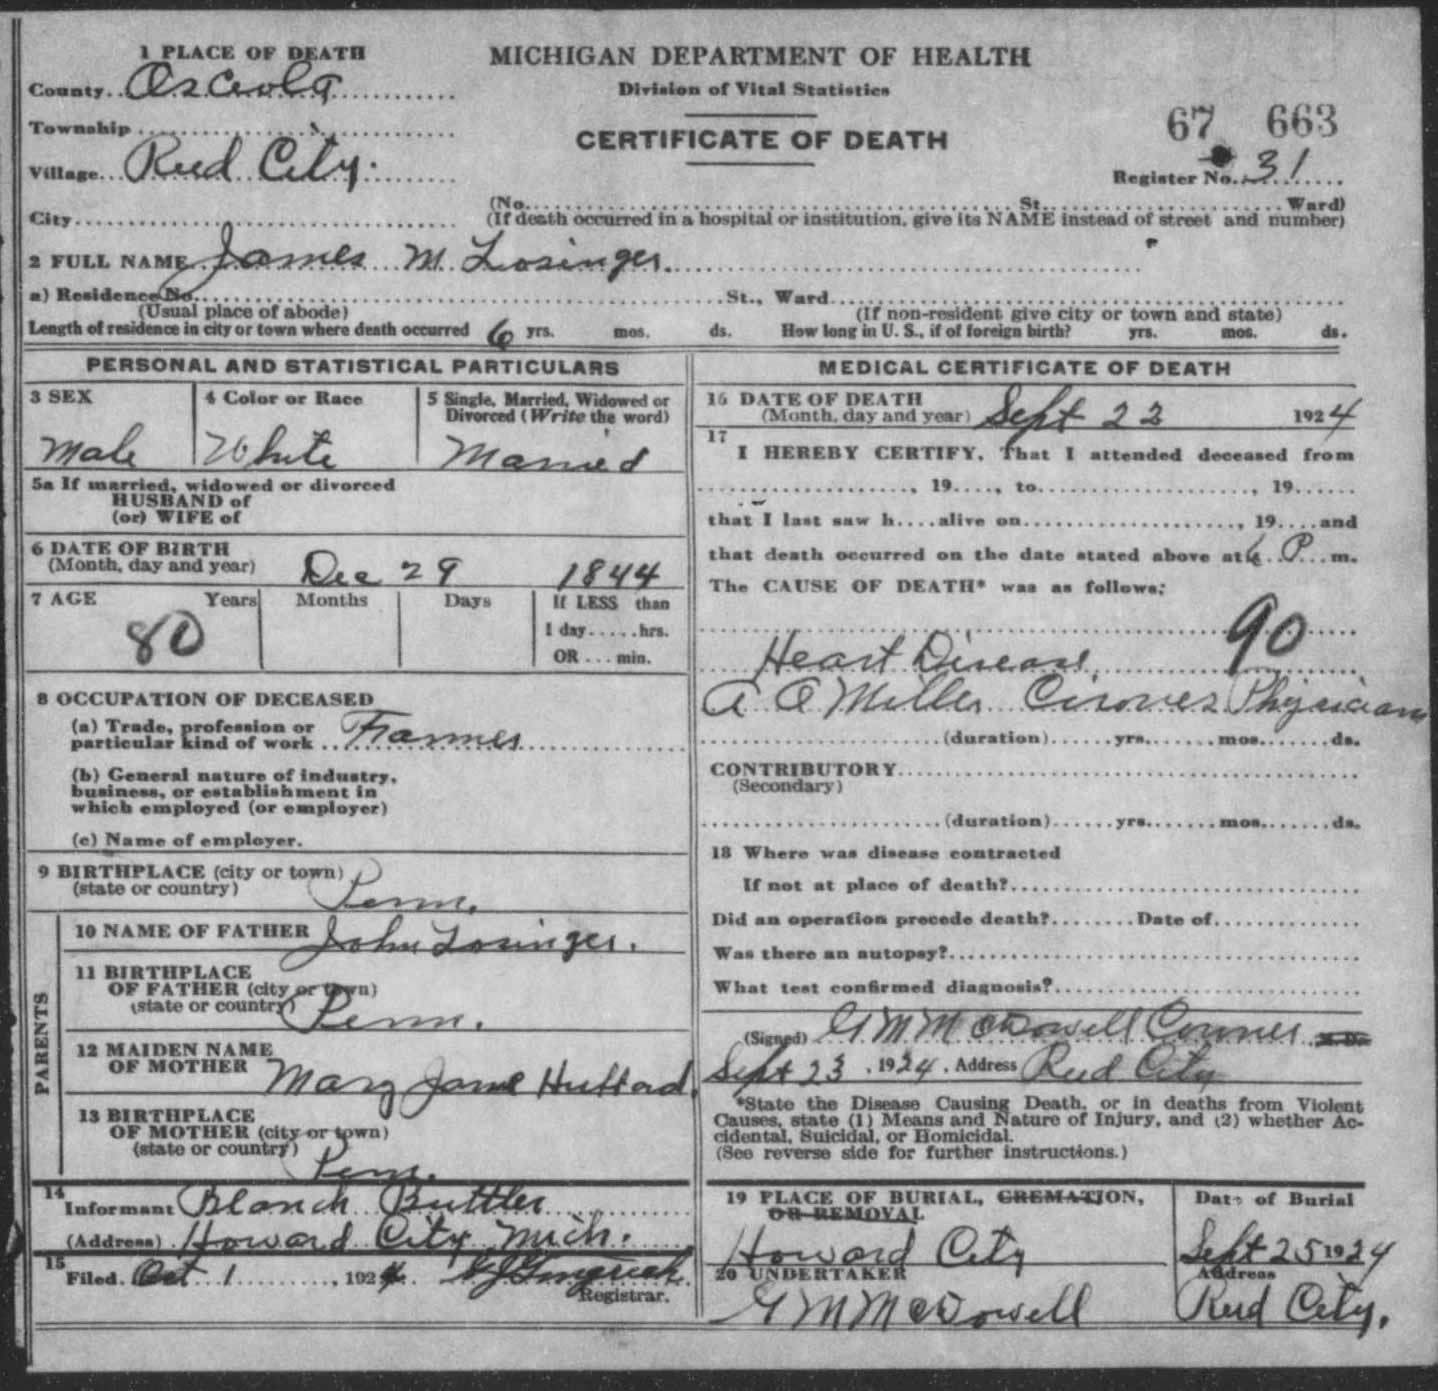 1 PLACE OF DEATH
MICHIGAN DEPARTMENT OF HEALTH
County Osceola
Division of Vital Statistics
67 663
Township
CERTIFICATE OF DEATH
Village Reed City.
Register No. 31
City
(No. St. Ward)
(If death occurred in a hospital or institution, give its NAME instead of street and number)
2 FULL NAME James M. Losinger.
a) Residence No. St., Ward
(Usual place of abode) (If non-resident give city or town and state)
Length of residence in city or town where death occurred 6 yrs. mos. ds. How long in U. S., if of foreign birth? yrs. mos. ds.
PERSONAL AND STATISTICAL PARTICULARS
3 SEX
Male
4 Color or Race
White
5 Single, Married, Widowed or
Divorced (Write the word)
Married
5a If married, widowed or divorced
HUSBAND of
(or) WIFE of
6 DATE OF BIRTH
(Month, day and year) Dec 29 1844
7 AGE Years Months Days If LESS than
80
1 day.....hrs.
OR ... min.
8 OCCUPATION OF DECEASED
(a) Trade, profession or
particular kind of work Farmer
(b) General nature of industry,
business, or establishment in
which employed (or employer)
(c) Name of employer.
9 BIRTHPLACE (city or town)
(state or country) Penn.
PARENTS
10 NAME OF FATHER John Losinger.
11 BIRTHPLACE
OF FATHER (city or town)
(state or country) Penn.
12 MAIDEN NAME
OF MOTHER Mary Jane Hubbard.
13 BIRTHPLACE
OF MOTHER (city or town)
(state or country) Penn.
14
Informant Blanch Buttler
(Address) Howard City Mich.
15
Filed Oct 1, 1924
Registrar.
MEDICAL CERTIFICATE OF DEATH
16 DATE OF DEATH
(Month, day and year) Sept 22 1924
17
I HEREBY CERTIFY, That I attended deceased from
, 19...., to , 19
that I last saw h....alive on , 19....and
that death occurred on the date stated above at 6 P. m.
The CAUSE OF DEATH* was as follows:
90
Heart Disease
A. A. Miller Physician
(duration) yrs. mos. ds.
CONTRIBUTORY
(Secondary)
(duration) yrs. mos. ds.
18 Where was disease contracted
If not at place of death?
Did an operation precede death? Date of
Was there an autopsy?
What test confirmed diagnosis?
(Signed) G M McDowell Coroner M. D.
Sept 23, 1924, Address Reed City
*State the Disease Causing Death, or in deaths from Violent
Causes, state (1) Means and Nature of Injury, and (2) whether Ac-
cidental, Suicidal, or Homicidal.
(See reverse side for further instructions.)
19 PLACE OF BURIAL, CREMATION,
OR REMOVAL
Howard City
Date of Burial
Sept 25 1924
20 UNDERTAKER
G M McDowell
Address
Reed City.